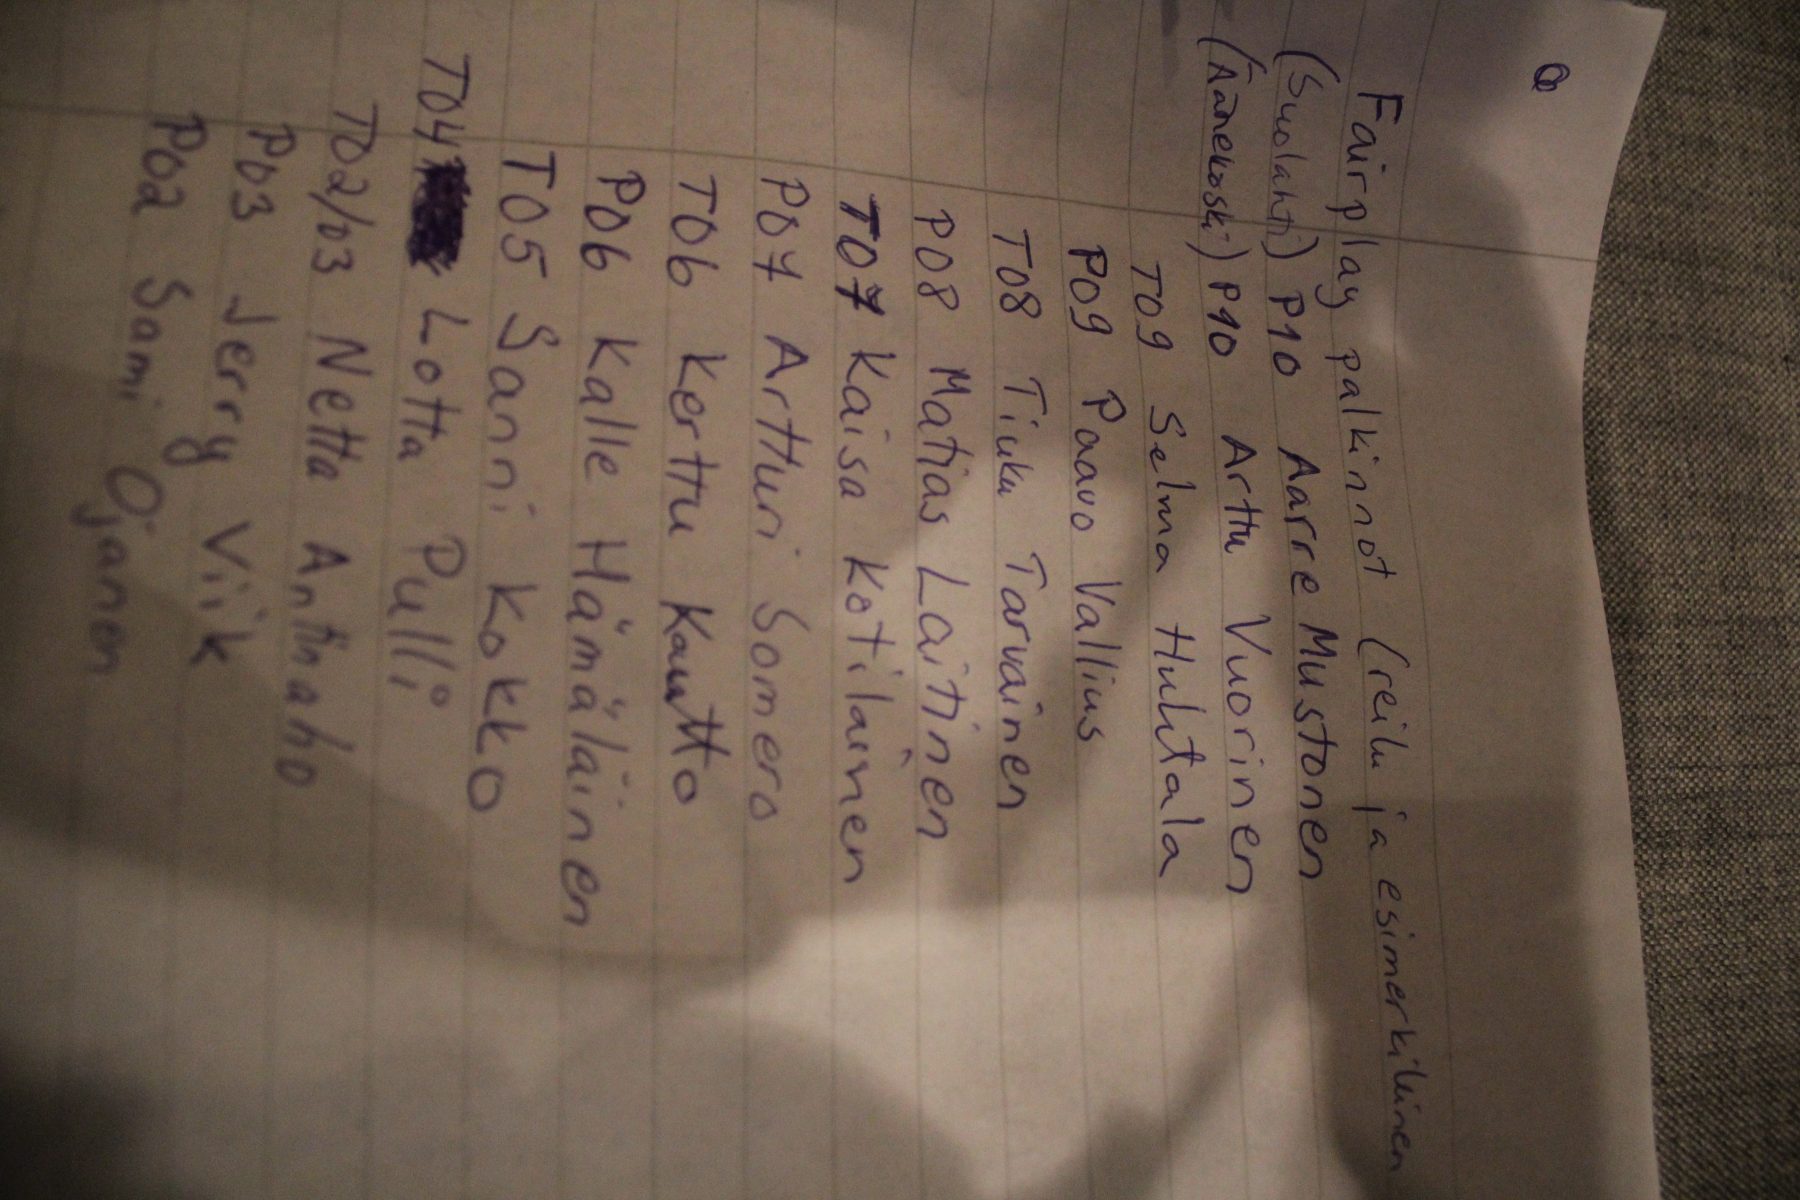 Fairplay palkinnot (reilu ja esimerkillinen
(Suolahti) P10 Aarre Mustonen
(Äänekoski) P10 Arttu Vuorinen
T09 Selma Huhtala
P09 Paavo Vallius
T08 Tiuku Tarvainen
P08 Matias Laitinen
T07 Kaisa Kotilainen
P07 Artturi Somero
T06 Kerttu Kautto
P06 Kalle Hämäläinen
T05 Sanni Kokko
T04 Lotta Pulli
T02/03 Netta Antinaho
P03 Jerry Viik
P02 Sami Ojanen